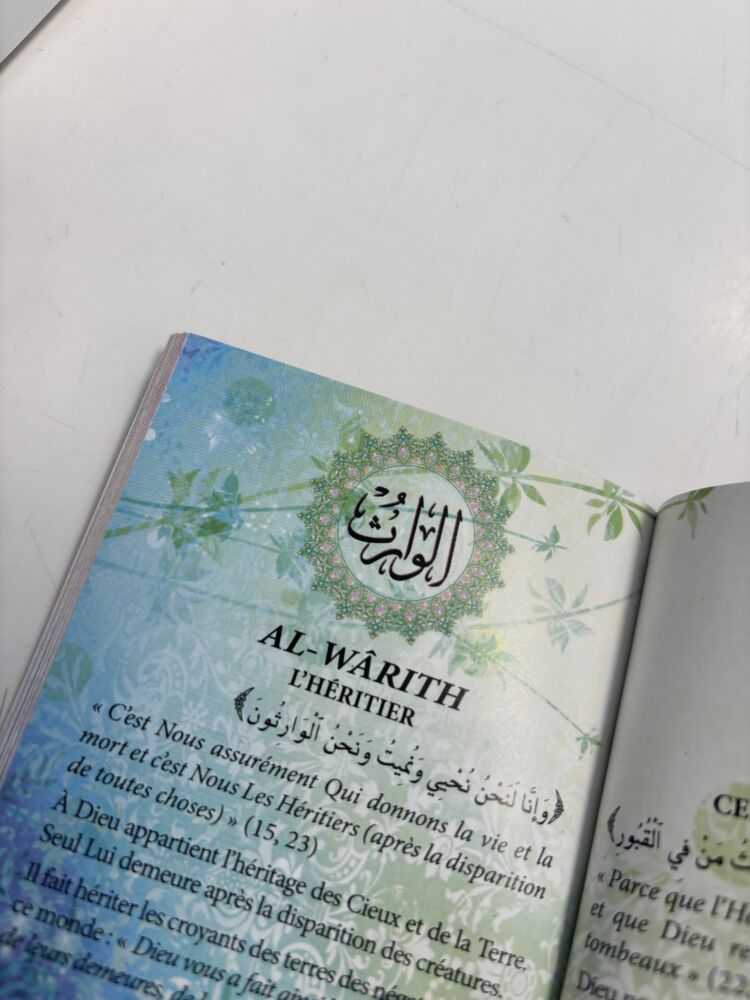 الوارث
AL-WÂRITH
L'HÉRITIER
﴿وَإِنَّا لَنَحْنُ نُحْيِي وَنُمِيتُ وَنَحْنُ الْوَارِثُونَ﴾
« C'est Nous assurément Qui donnons la vie et la
mort et c'est Nous Les Héritiers (après la disparition
de toutes choses) » (15, 23)
À Dieu appartient l'héritage des Cieux et de la Terre.
Seul Lui demeure après la disparition des créatures.
Il fait hériter les croyants des terres des
ce monde : « Dieu vous a fait
de leurs demeures, de
CE
مَنْ فِي الْقُبُورِ﴾
« Parce que l'H
et que Dieu re
tombeaux. » (22
Dieu